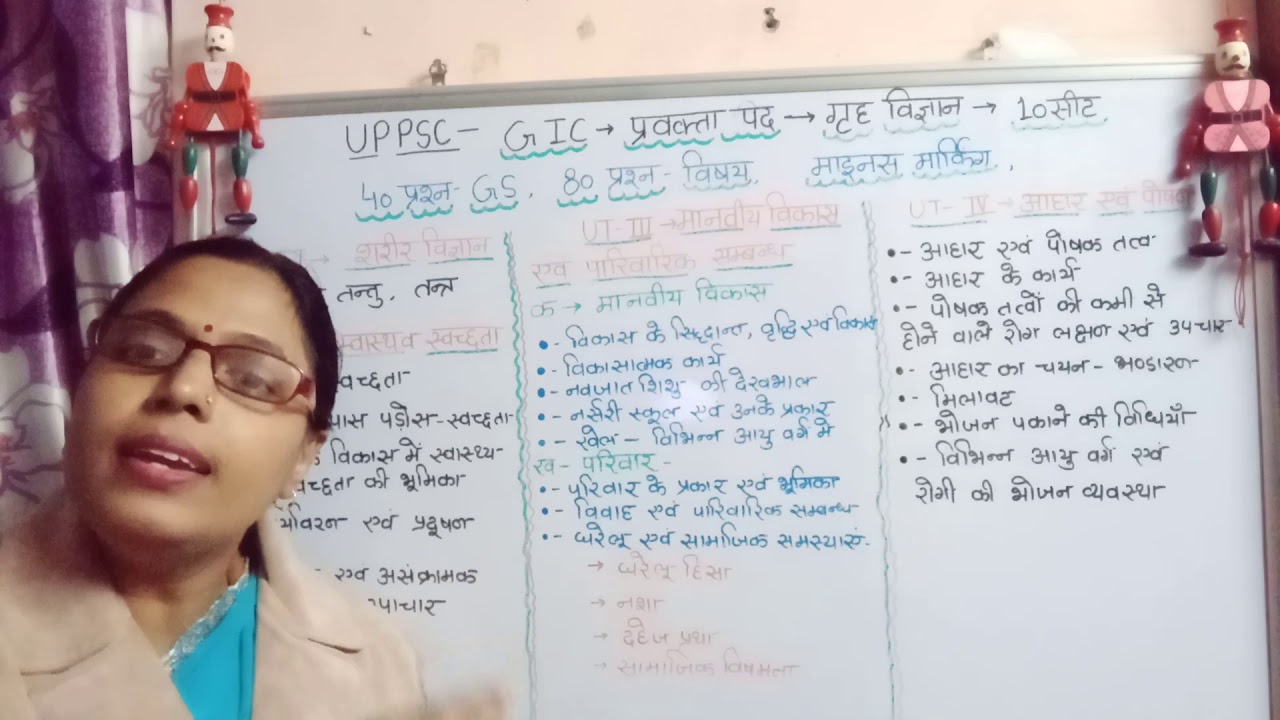 UPPSC - GIC → प्रवक्ता पद → गृह विज्ञान → 10 सीट
40 प्रश्न - GS, 80 प्रश्न - विषय, माइनस मार्किंग,
→ शरीर विज्ञान
तन्तु, तन्त्र
स्वास्थ्य व स्वच्छता
स्वच्छता
पास पड़ोस - स्वच्छता
विकास में स्वास्थ्य-
स्वच्छता की भूमिका
एवं प्रदूषण
एवं असंक्रामक
UT-III → मानवीय विकास
एवं पारिवारिक सम्बन्ध
क → मानवीय विकास
•- विकास के सिद्धान्त, वृद्धि एवं विकास
•- विकासात्मक कार्य
•- नवजात शिशु की देखभाल
•- नर्सरी स्कूल एवं उनके प्रकार
•- खेल - विभिन्न आयु वर्ग में
ख- परिवार -
•- परिवार के प्रकार एवं भूमिका
•- विवाह एवं पारिवारिक सम्बन्ध
•- घरेलू एवं सामाजिक समस्याएं-
→ घरेलू हिंसा
→ नशा
→ दहेज प्रथा
→ सामाजिक विषमता
UT-IV → आहार एवं पोषण
•- आहार एवं पोषक तत्व
•- आहार के कार्य
•- पोषक तत्वों की कमी से
होने वाले रोग लक्षण एवं उपचार
•- आहार का चयन - भण्डारन
•- मिलावट
•- भोजन पकाने की विधियाँ
•- विभिन्न आयु वर्ग एवं
रोगी की भोजन व्यवस्था